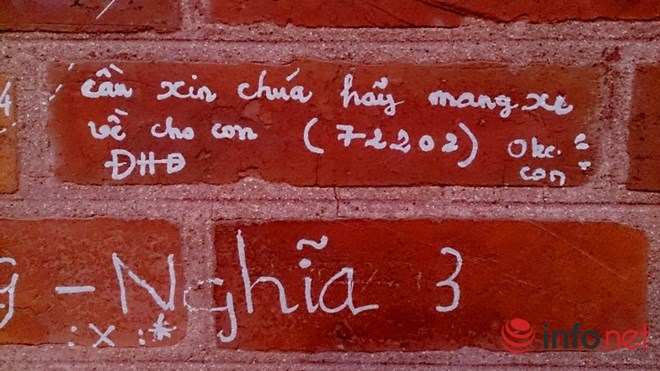 4
cần xin chúa hãy mang xe
về cho con (72202) Oke.
ĐHĐ con
g - Nghĩa 3
:x :*
infonet